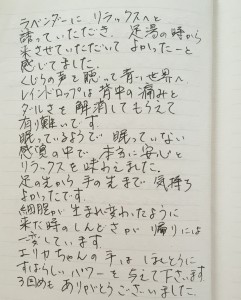 ラベンダーに リラックスへと
誘っていただき、足湯の時から
来させていただいて よかったーと
感じてました。
くじらの声を聴って 青い世界へ
レインドロップは 背中の痛みと
ダルさを 解消してもらえて
有り難いです。
眠っているようで 眠っていない
感覚の中で 本当に 安心と
リラックスを 味わえました。
足の先から 手の先まで 気持ち
よかったです。
細胞が 生まれ変わったように
来た時のしんどさが 帰りには
一変しています。
エリカちゃんの 手は ほんとうに
すばらしい パワーを 与えて下さいます
3回めも ありがとうございました。